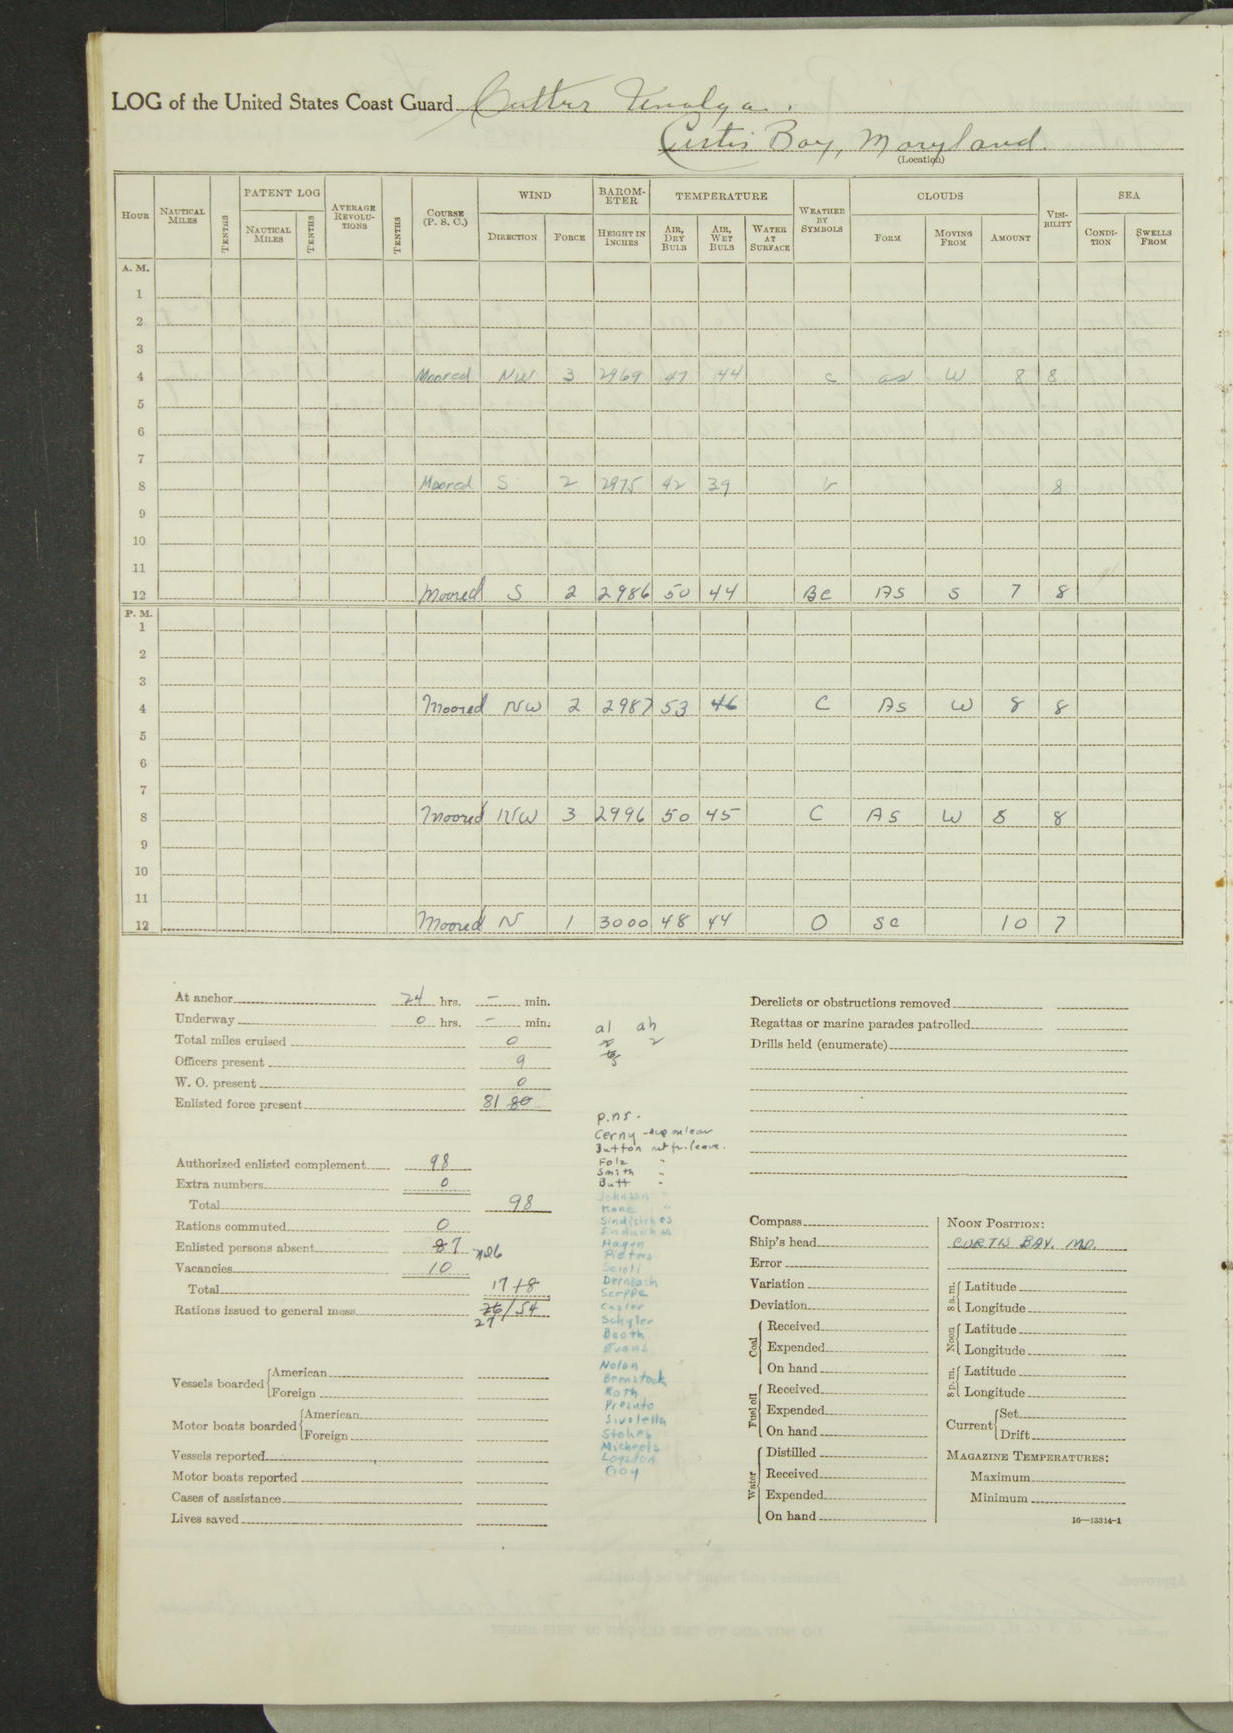 LOG of the United States Coast Guard Cutter
Curtis Bay, Maryland.
(Location)
HOUR NAUTICAL MILES TENTHS PATENT LOG AVERAGE REVOLU-TIONS TENTHS COURSE (P. S. C.) WIND BAROM-ETER TEMPERATURE WEATHER BY SYMBOLS CLOUDS VISI-BILITY SEA
NAUTICAL MILES TENTHS DIRECTION FORCE HEIGHT IN INCHES AIR, DRY BULB AIR, WET BULB WATER AT SURFACE FORM MOVING FROM AMOUNT CONDI-TION SWELLS FROM
A. M.
1
2
3
4 Moored NW 3 2969 47 44 c as W 8 8
5
6
7
8 Moored S 2 2975 42 39 8
9
10
11
12 Moored S 2 2986 50 44 Bc AS S 7 8
P. M.
1
2
3
4 Moored NW 2 2987 53 46 C AS W 8 8
5
6
7
8 Moored NW 3 2996 50 45 C AS W 8 8
9
10
11
12 Moored N 1 3000 48 44 O Sc 10 7
At anchor 24 hrs. – min.
Underway 0 hrs. – min.
Total miles cruised 0
Officers present 9
W. O. present 0
Enlisted force present 81 80
Authorized enlisted complement 98
Extra numbers 0
Total 98
Rations commuted 0
Enlisted persons absent 8 7
Vacancies 10
Total 17 18
Rations issued to general mess 26/54
27
Vessels boarded American
Foreign
Motor boats boarded American
Foreign
Vessels reported
Motor boats reported
Cases of assistance
Lives saved
al ah
2
3
p.ns.
Cerny
Button
Folz "
Smith "
Butt "
Johnson "
Kane "
Hagen
Dernbach
Schyler
Booth
Evans
Nolan "
Roth
Presuto
Sivolella
Stokes
Michaels
Logsdon
Goy
Derelicts or obstructions removed
Regattas or marine parades patrolled
Drills held (enumerate)
Compass
Ship's head
Error
Variation
Deviation
Coal Received
Expended
On hand
Fuel oil Received
Expended
On hand
Water Distilled
Received
Expended
On hand
NOON POSITION:
CURTIS BAY, MD.
8 a. m. Latitude
Longitude
Noon Latitude
Longitude
8 p. m. Latitude
Longitude
Current Set
Drift
MAGAZINE TEMPERATURES:
Maximum
Minimum
16—13314-1